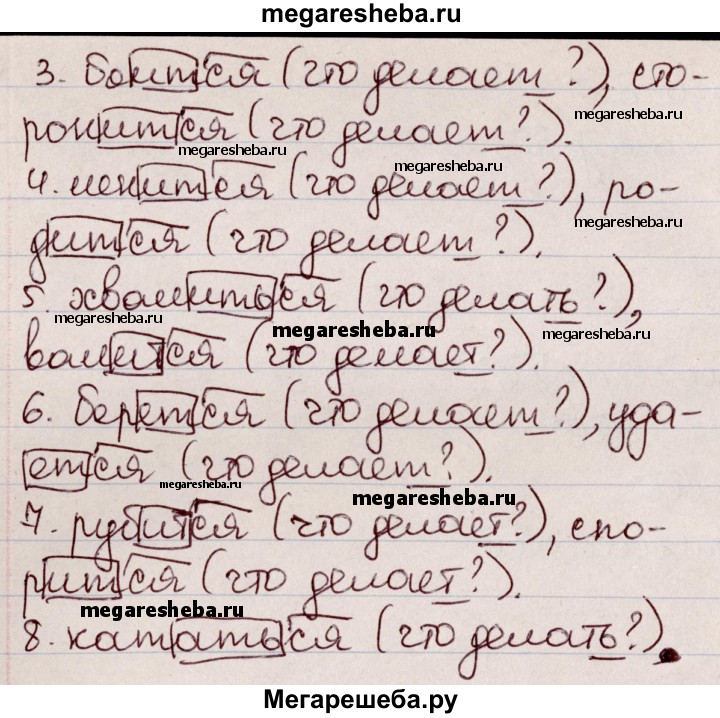 megaresheba.ru
3. боится (что делает?), сто-
megaresheba.ru
ронится (что делает?).
megaresheba.ru
megaresheba.ru
4. ленится (что делает?), ро-
megaresheba.ru
дится (что делает?).
5. хвалиться (что делать?),
megaresheba.ru
megaresheba.ru
валится (что делает?).
6. берется (что делает?), уда-
ется (что делает?).
megaresheba.ru
megaresheba.ru
7. рубится (что делает?), спо-
рится (что делает?).
megaresheba.ru
8. кататься (что делать?).
Мегарешеба.ру